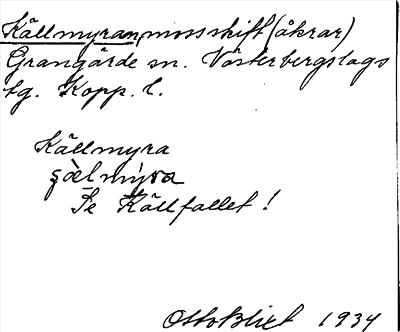 Källmyran, mosskift (åkrar)
Grangärde sn. Västerbergslags
tg. Kopp. l.
Källmyra
s̹ὰlmy̆ra
Se Källfallet!
Otto Blixt 1934